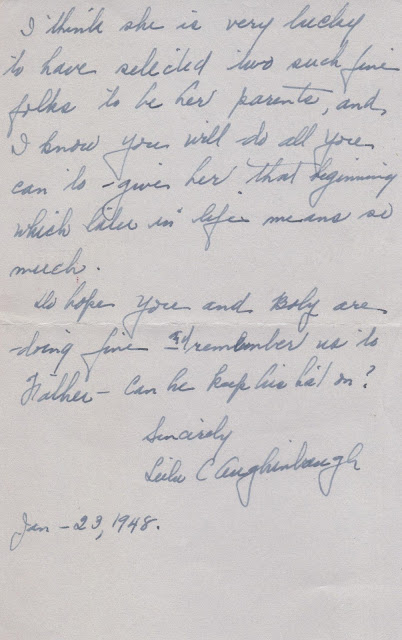 I think she is very lucky
to have selected two such fine
folks to be her parents, and
I know you will do all you
can to - give her that beginning
which later in life means so
much.
Do hope you and Baby are
doing fine and remember us to
Father - can he keep his hat on?
Sincerely
Leila C Aughinbaugh
Jan - 23, 1948.